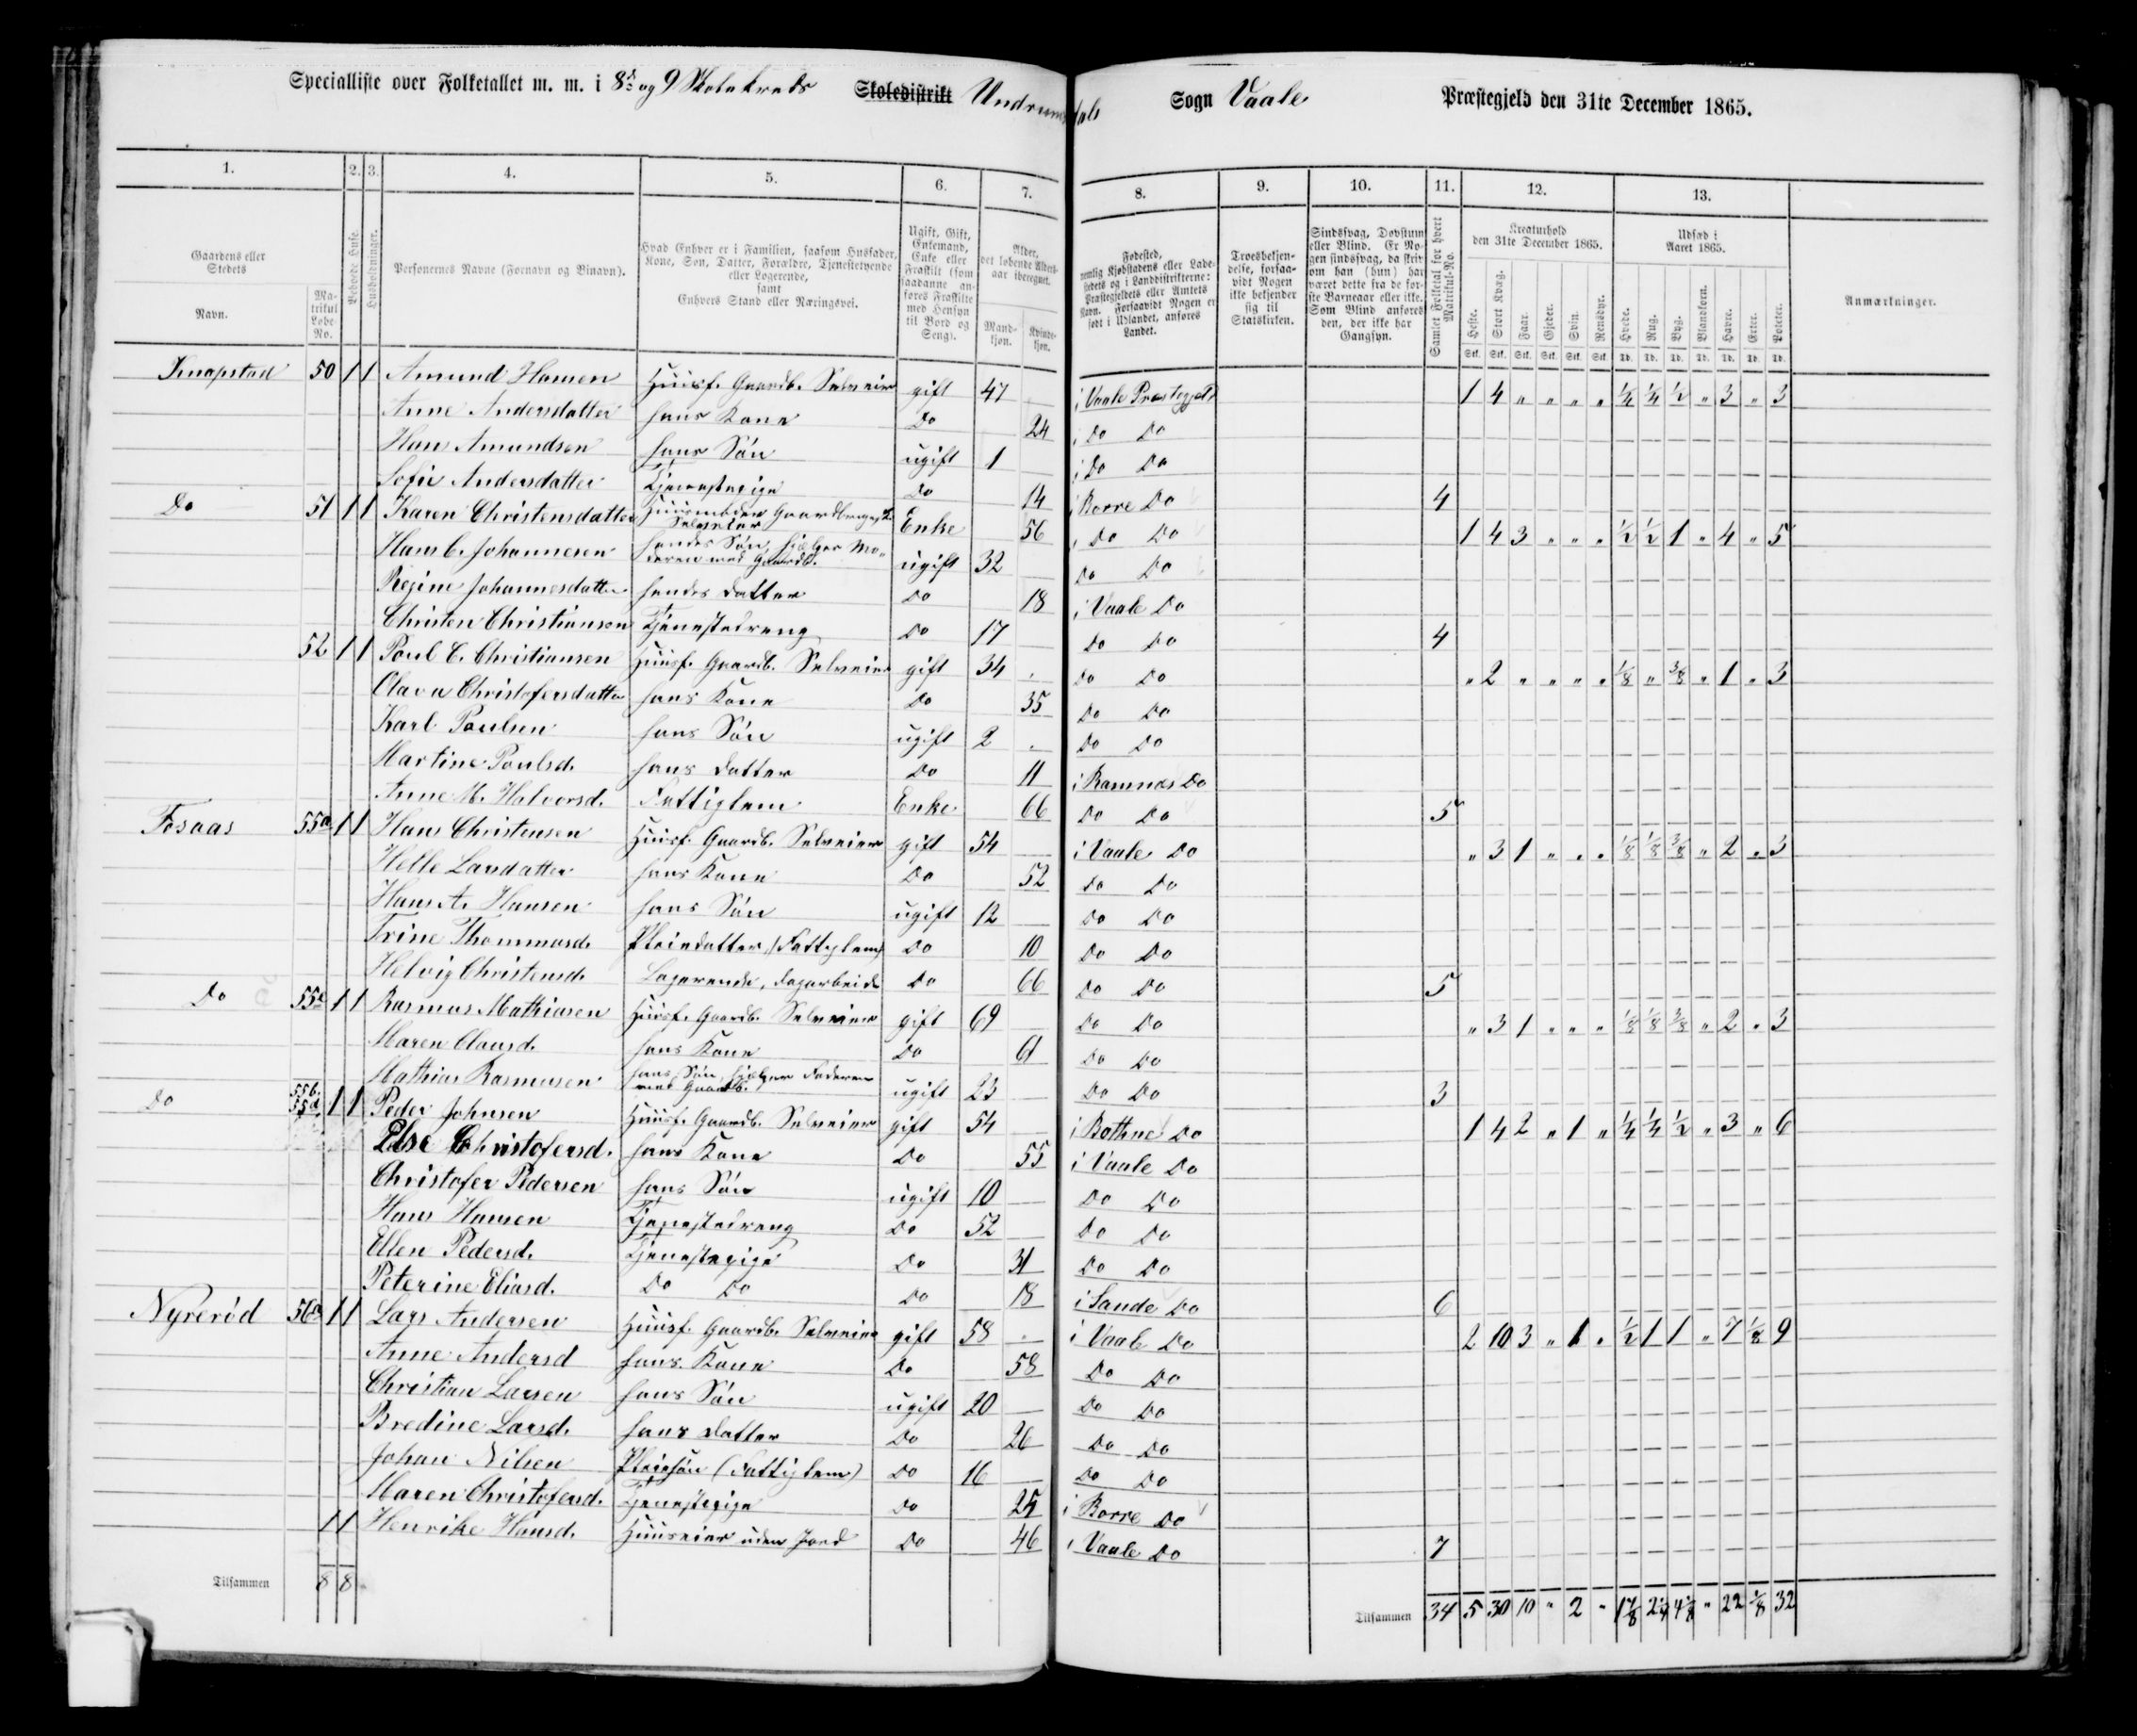 Specialliste over Folketallet m. m. i 8de og 9 Skolekreds Skoledistrikt Undrumsdals Sogn Vaale Præstegjeld den 31te December 1865.
1. 2. 3. 4. 5. 6. 7. 8. 9. 10. 11. 12. 13.
Gaardens eller Stedets
Navn. Matrikul Løbe No.
Beboede Huse.
Husholdninger.
Personernes Navne (Fornavn og Binavn).
Hvad Enhver er i Familien, saasom Husfader, Kone, Søn, Datter, Forældre, Tjenestetyende eller Logerende, samt Enhvers Stand eller Næringsvei.
Ugift, Gift, Enkemand, Enke eller Fraskilt (som saadanne anføres Fraskilte med Hensyn til Bord og Seng).
Alder, det løbende Alders-aar iberegnet.
Mandkjøn. Kvindekjøn.
Fødested, nemlig Kjøbstadens eller Ladestedets og i Landdistrikterne: Præstegjeldets eller Amtets Navn. Forsaavidt Nogen er født i Udlandet, anføres Landet.
Troesbekjendelse, forsaavidt Nogen ikke bekjender sig til Statskirken.
Sindssvag, Døvstum eller Blind. Er Nogen sindssvag, da skriv om han (hun) har været dette fra de første Barneaar eller ikke. Som Blind anføres den, der ikke har Gangsyn.
Samlet Folketal for hvert Matrikul-No.
Kreaturhold den 31te December 1865.
Heste. Stort Kvæg. Faar. Gjeder. Svin. Rensdyr.
Udsæd i Aaret 1865.
Hvede. Rug. Byg. Blandkorn. Havre. Erter. Poteter.
Stk. Stk. Stk. Stk. Stk. Stk. Td. Td. Td. Td. Td. Td. Td.
Anmærkninger.
Knapstad 50 1 1 Amund Hansen Huusf. Gaardb. Selveier gift 47 i Vaale Præstegjeld 1 4 " " " " 1/4 1/4 1/2 " 3 " 3
Anne Andersdatter hans Kone Do 24 i Do Do
Hans Amundsen hans Søn ugift 1 i Do Do
Sofie Andersdatter Tjenestepige Do 14 i Borre Do 4
Do 51 1 1 Karen Christensdatter Huusmoder Gaardbrugerske Selveier Enke 56 i Do Do 1 4 3 " " " 1/2 1/2 1 " 4 " 5
Hans C. Johannesen hendes Søn, hjælper Moderen med Gaardb. ugift 32 Do Do
Regine Johannesdatter hendes Datter Do 18 i Vaale Do
Christen Christiansen Tjenestedreng Do 17 Do Do 4
52 1 1 Poul C. Christiansen Huusf. Gaardb. Selveier gift 34 Do Do " 2 " " " " 1/8 " 3/8 " 1 " 3
Olava Christofersdatter hans Kone Do 35 Do Do
Karl Poulsen hans Søn ugift 2 Do Do
Martine Poulsd. hans Datter Do 11 i Ramnæs Do
Anne M. Halvorsd. Fattiglem Enke 66 Do Do 5
Fosaas 55a 1 1 Hans Christensen Huusf. Gaardb. Selveier gift 54 i Vaale Do " 3 1 " " " 1/8 1/8 3/8 " 2 " 3
Helle Larsdatter hans Kone Do 52 Do Do
Hans A. Hansen hans Søn ugift 12 Do Do
Trine Thommasd. Pleiedatter (Fattiglem) Do 10 Do Do
Helvig Christensd. Logerende, Dagarbeide Do 66 Do Do 5
Do 55c 1 1 Rasmus Mathiasen Huusf. Gaardb. Selveier gift 69 Do Do " 3 1 " " " 1/8 1/8 3/8 " 2 " 3
Maren Clausd. hans Kone Do 61 Do Do
Mathias Rasmusen hans Søn, hjælper Faderen med Gaardb. ugift 23 Do Do 3
Do 55b. 55d. 1 1 Peder Johnsen Huusf. Gaardb. Selveier gift 54 i Bothne Do 1 4 2 " 1 " 1/4 1/4 1/2 " 3 " 6
Else Christofersd. hans Kone Do 55 i Vaale Do
Christofer Pedersen hans Søn ugift 10 Do Do
Hans Hansen Tjenestedreng Do 52 Do Do
Ellen Pedersd. Tjenestepige Do 31 Do Do
Peterine Eliasd. Do Do Do 18 i Sande Do 6
Nyrerød 56a 1 1 Lars Andersen Huusf. Gaardb. Selveier gift 58 i Vaale Do 2 10 3 " 1 " 1/2 1 1 " 7 1/8 9
Anne Andersd hans Kone Do 58 Do Do
Christian Larsen hans Søn ugift 20 Do Do
Bredine Larsd. hans Datter Do 26 Do Do
Johan Nilsen Pleiesøn (Fattiglem) Do 16 Do Do
Maren Christofersd. Tjenestepige Do 25 i Borre Do
1 1 Henrike Hansd. Huuseier uden Jord Do 46 i Vaale Do 7
Tilsammen 8 8 Tilsammen 34 5 30 10 " 2 " 1 7/8 2 1/4 4 1/8 " 22 1/8 32